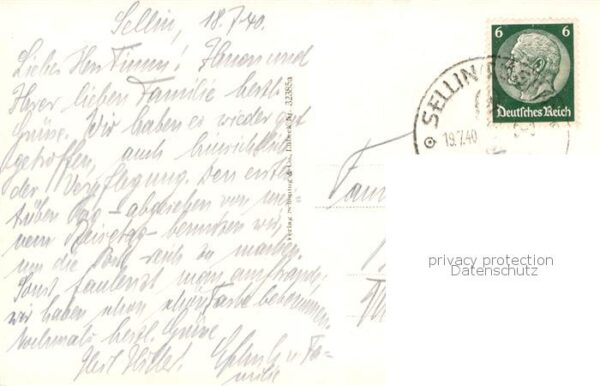 Sellin, 18.7.40.
Lieber Herr Timm! Ihnen und
Ihrer lieben Familie herzl.
Grüße. Wir haben es wieder gut
getroffen, auch hinsichtlich
der Verpflegung. Den ersten
trüben Tag – abgesehen von
nem – benutzen wir,
um die Post zu machen.
Sonst faulenzt man am Strande,
wir haben schon Farbe bekommen.
Nochmals herzl. Grüße
Heil Hitler. u. Fa-
milie
Verlag Schöning & Co., Lübeck Nr. 32385a
6 6
Deutsches Reich
SELLIN
19.7.40
Fam
privacy protection
Datenschutz